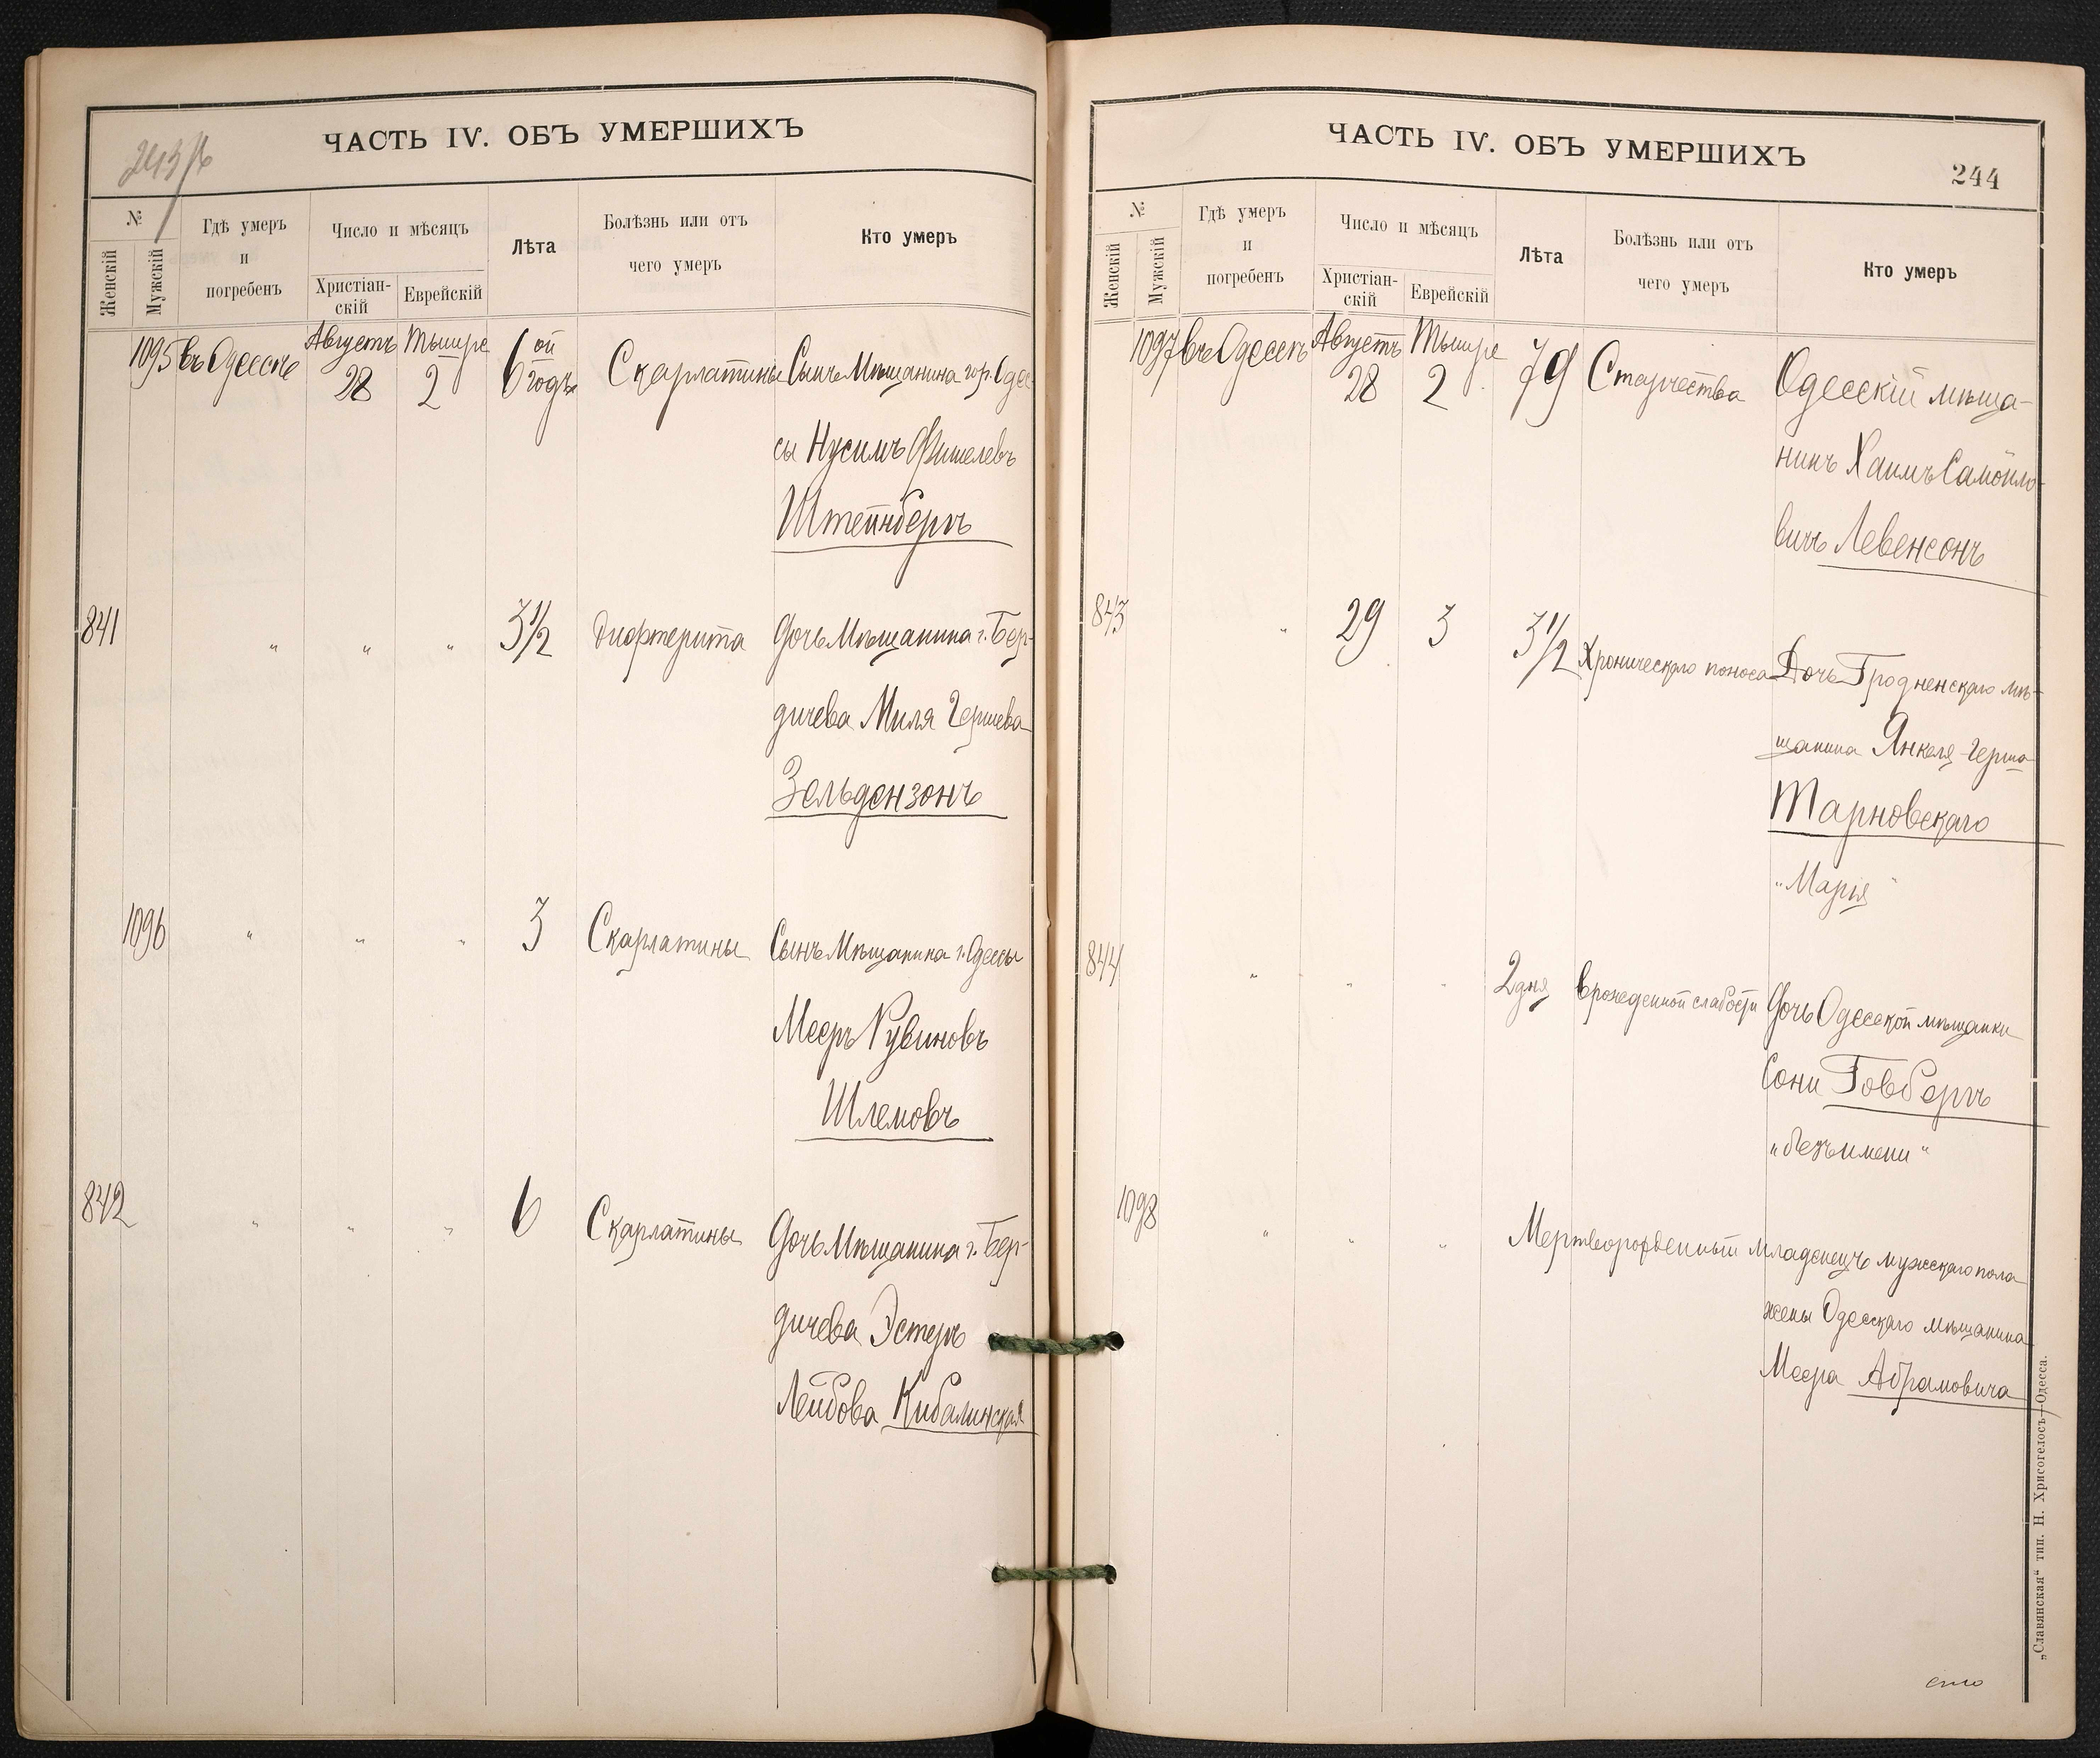 243/б
ЧАСТЬ IV. ОБЪ УМЕРШИХЪ
№
Женскій
Мужскій
Гдѣ умеръ
и
погребенъ
Число и мѣсяцъ
Христіан-
скій
Еврейскій
Лѣта
Болѣзнь или отъ
чего умеръ
Кто умеръ
1095 въ Одессѣ Августъ 28 Тышре 2 6ой годъ Скарлатины Сынъ Мѣщанина гор. Одес-
сы Нусимъ Фишелевъ
Штейнбергъ
841 " " " 3½ Дифтерита Дочь Мѣщанина г. Бер-
дичева Миля Гершева
Зельдензонъ
1096 " " " 3 Скарлатины Сынъ Мѣщанина г. Одессы
Мееръ Рувиновъ
Шлемовъ
842 " " " 6 Скарлатины Дочь Мѣщанина г. Бер-
дичева Эстеръ
Лейбова Кибалинская
ЧАСТЬ IV. ОБЪ УМЕРШИХЪ
244
№
Женскій
Мужскій
Гдѣ умеръ
и
погребенъ
Число и мѣсяцъ
Христіан-
скій
Еврейскій
Лѣта
Болѣзнь или отъ
чего умеръ
Кто умеръ
1097 въ Одессѣ Августъ 28 Тышре 2 79 Старчества Одесскій мѣща-
нинъ Хаимъ Самойло-
вичъ Левенсонъ
843 " 29 3 3½ Хроническаго поноса Дочь Гродненскаго мѣ-
щанина Янкеля-Герша
Тарновскаго
"Марья"
844 " " " 2 дня врожденной слабости Дочь Одесской мѣщанки
Сони Говбергъ
"безъ имени"
1098 " " " Мертворожденный младенецъ мужескаго пола
жены Одесскаго мѣщанина
Меера Абрамовича
„Славянская“ тип. Н. Хрисогелосъ—Одесса.